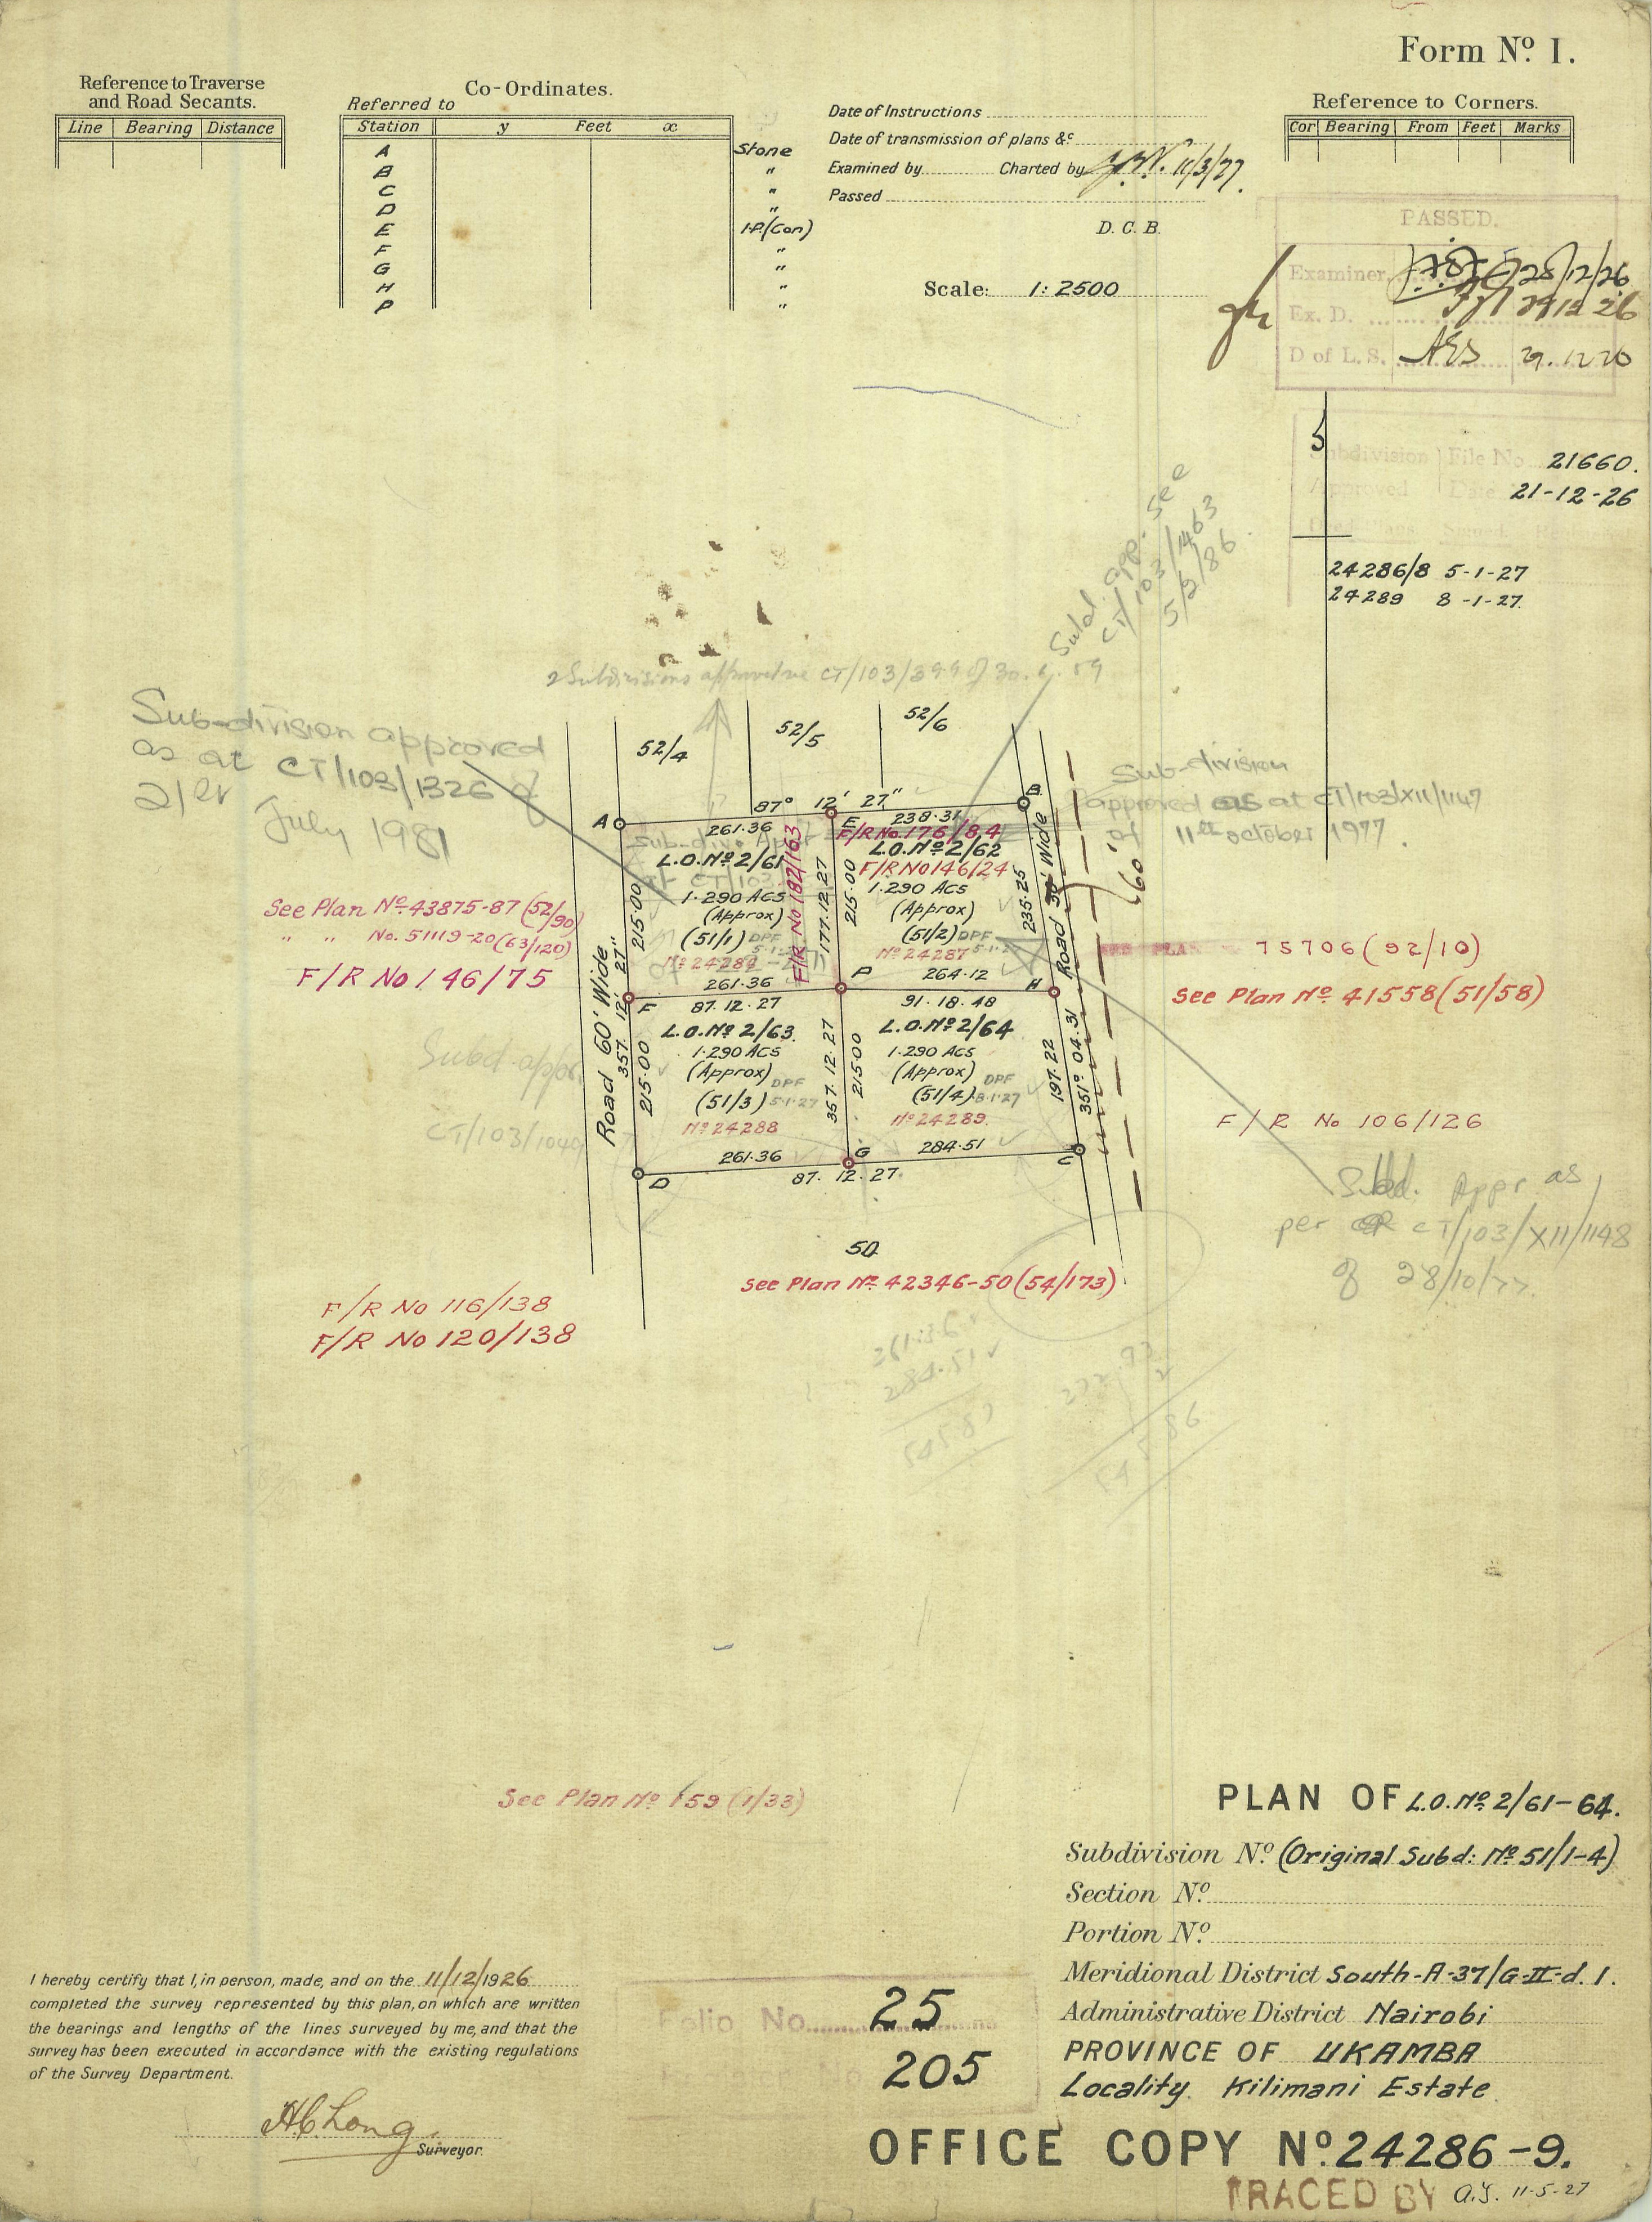 Form Nº 1.
Reference to Traverse
and Road Secants.
Line Bearing Distance
Co-Ordinates.
Referred to
Station y Feet x
A Stone
B "
C "
D "
E I.P.(Con)
F "
G "
H "
P "
Date of Instructions
Date of transmission of plans &c
Examined by Charted by 11/3/77.
Passed
D. C. B.
Scale: 1:2500
Reference to Corners.
Cor Bearing From Feet Marks
PASSED.
Examiner 28/12/26
Ex. D. 29 12 26
D of L. S. 29.12.26
Subdivision File No 21660.
Approved Date 21-12-26
24286/8 5-1-27
24289 8-1-27.
Subd. app. see
CT/103/1463
5/2/86
2 Subdivisions approved CT/103/399 of 30.6.59
Sub-division approved
as at CT/103/1326 of
21st
July 1981
52/4 52/5 52/6
Sub-division
approved as at CT/103/XII/1147
of 11th october 1977.
A 87° 12' 27" B
261.36 E 238.31
F/R No.176/84
L.O.Nº 2/61
L.O.Nº 2/62
F/R No 182/163
F/R No 146/24
1.290 ACS
(Approx)
(51/1) DPF
1.290 ACS
(Approx)
(51/2) DPF
Nº 24287
215.00
177.12.27
215.00
235.25
Road 30' Wide
60'
See Plan Nº 43875-87 (52/90)
" " No. 51119-20 (63/120)
F/R No 146/75
SEE PLAN 75706 (92/10)
See Plan Nº 41558 (51/58)
261.36 P 264.12 H
F 87.12.27 91.18.48
Road 60' Wide
357. 12. 27"
L.O.Nº 2/63
1.290 ACS
(Approx) DPF
(51/3) 5-1-27
Nº 24288
L.O.Nº 2/64
1.290 ACS
(Approx) DPF
(51/4) 8-1-27
Nº 24289
215.00
357.12.27
215.00
197.22
351° 04.31
Subd. appr.
F/R No 106/126
261.36 G 284.51 C
D 87. 12. 27.
Subd. Appr as
per CT/103/XII/1148
of 28/10/77.
50
See Plan Nº 42346-50 (54/173)
F/R No 116/138
F/R No 120/138
261.36
284.51
545.87
See Plan Nº 159 (1/33)
PLAN OF L.O.Nº 2/61-64.
Subdivision Nº (Original Subd: Nº 51/1-4)
Section Nº
Portion Nº
Meridional District South-A-37/G-II-d. 1.
Administrative District Nairobi
PROVINCE OF UKAMBA
Locality Kilimani Estate
I hereby certify that I, in person, made, and on the 11/12/1926
completed the survey represented by this plan, on which are written
the bearings and lengths of the lines surveyed by me, and that the
survey has been executed in accordance with the existing regulations
of the Survey Department.
H.C. Long.
Surveyor.
Folio No. 25
205
OFFICE COPY Nº 24286-9.
TRACED BY 11-5-27